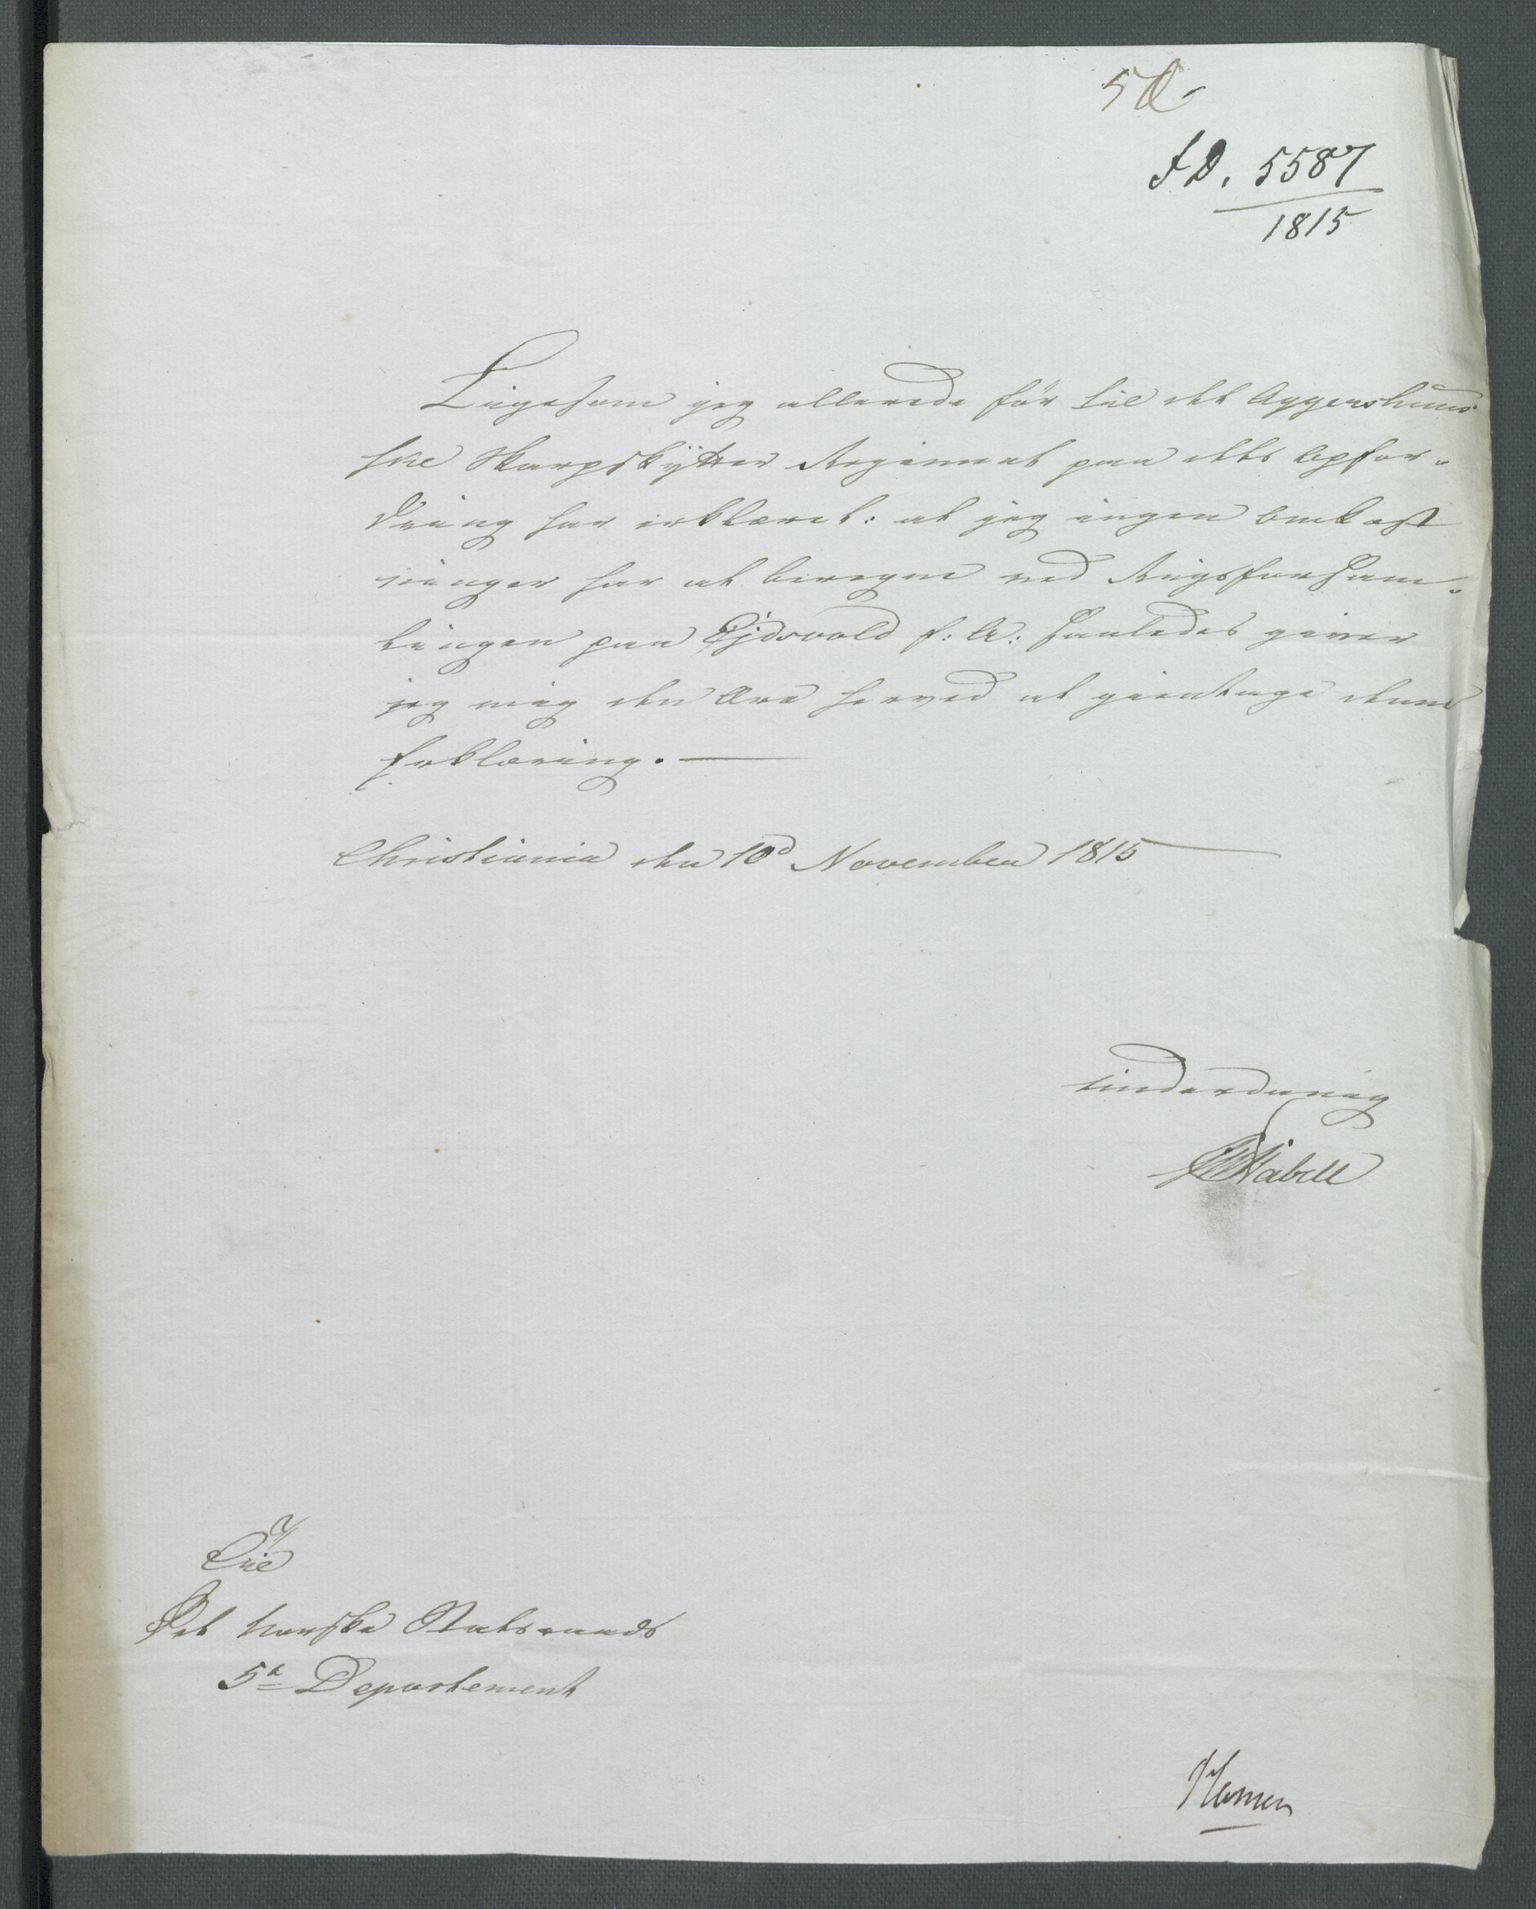 FD. 5587
1815
Ligesom jeg allerede før til det Aggershuus
ske Skarpskÿtter Regiment paa dets Opfor-
dring har erklæret: at jeg ingen Omkost
ninger har at beregne ved Rigsforsam-
lingen paa Ejdsvold f: A: saaledes giver
jeg mig den Ære herved at gientage denne
Erklæring.
Christiania den 10d November 1815
underdanig
Stabell
Til
Det norske Statsraads
5te Departement